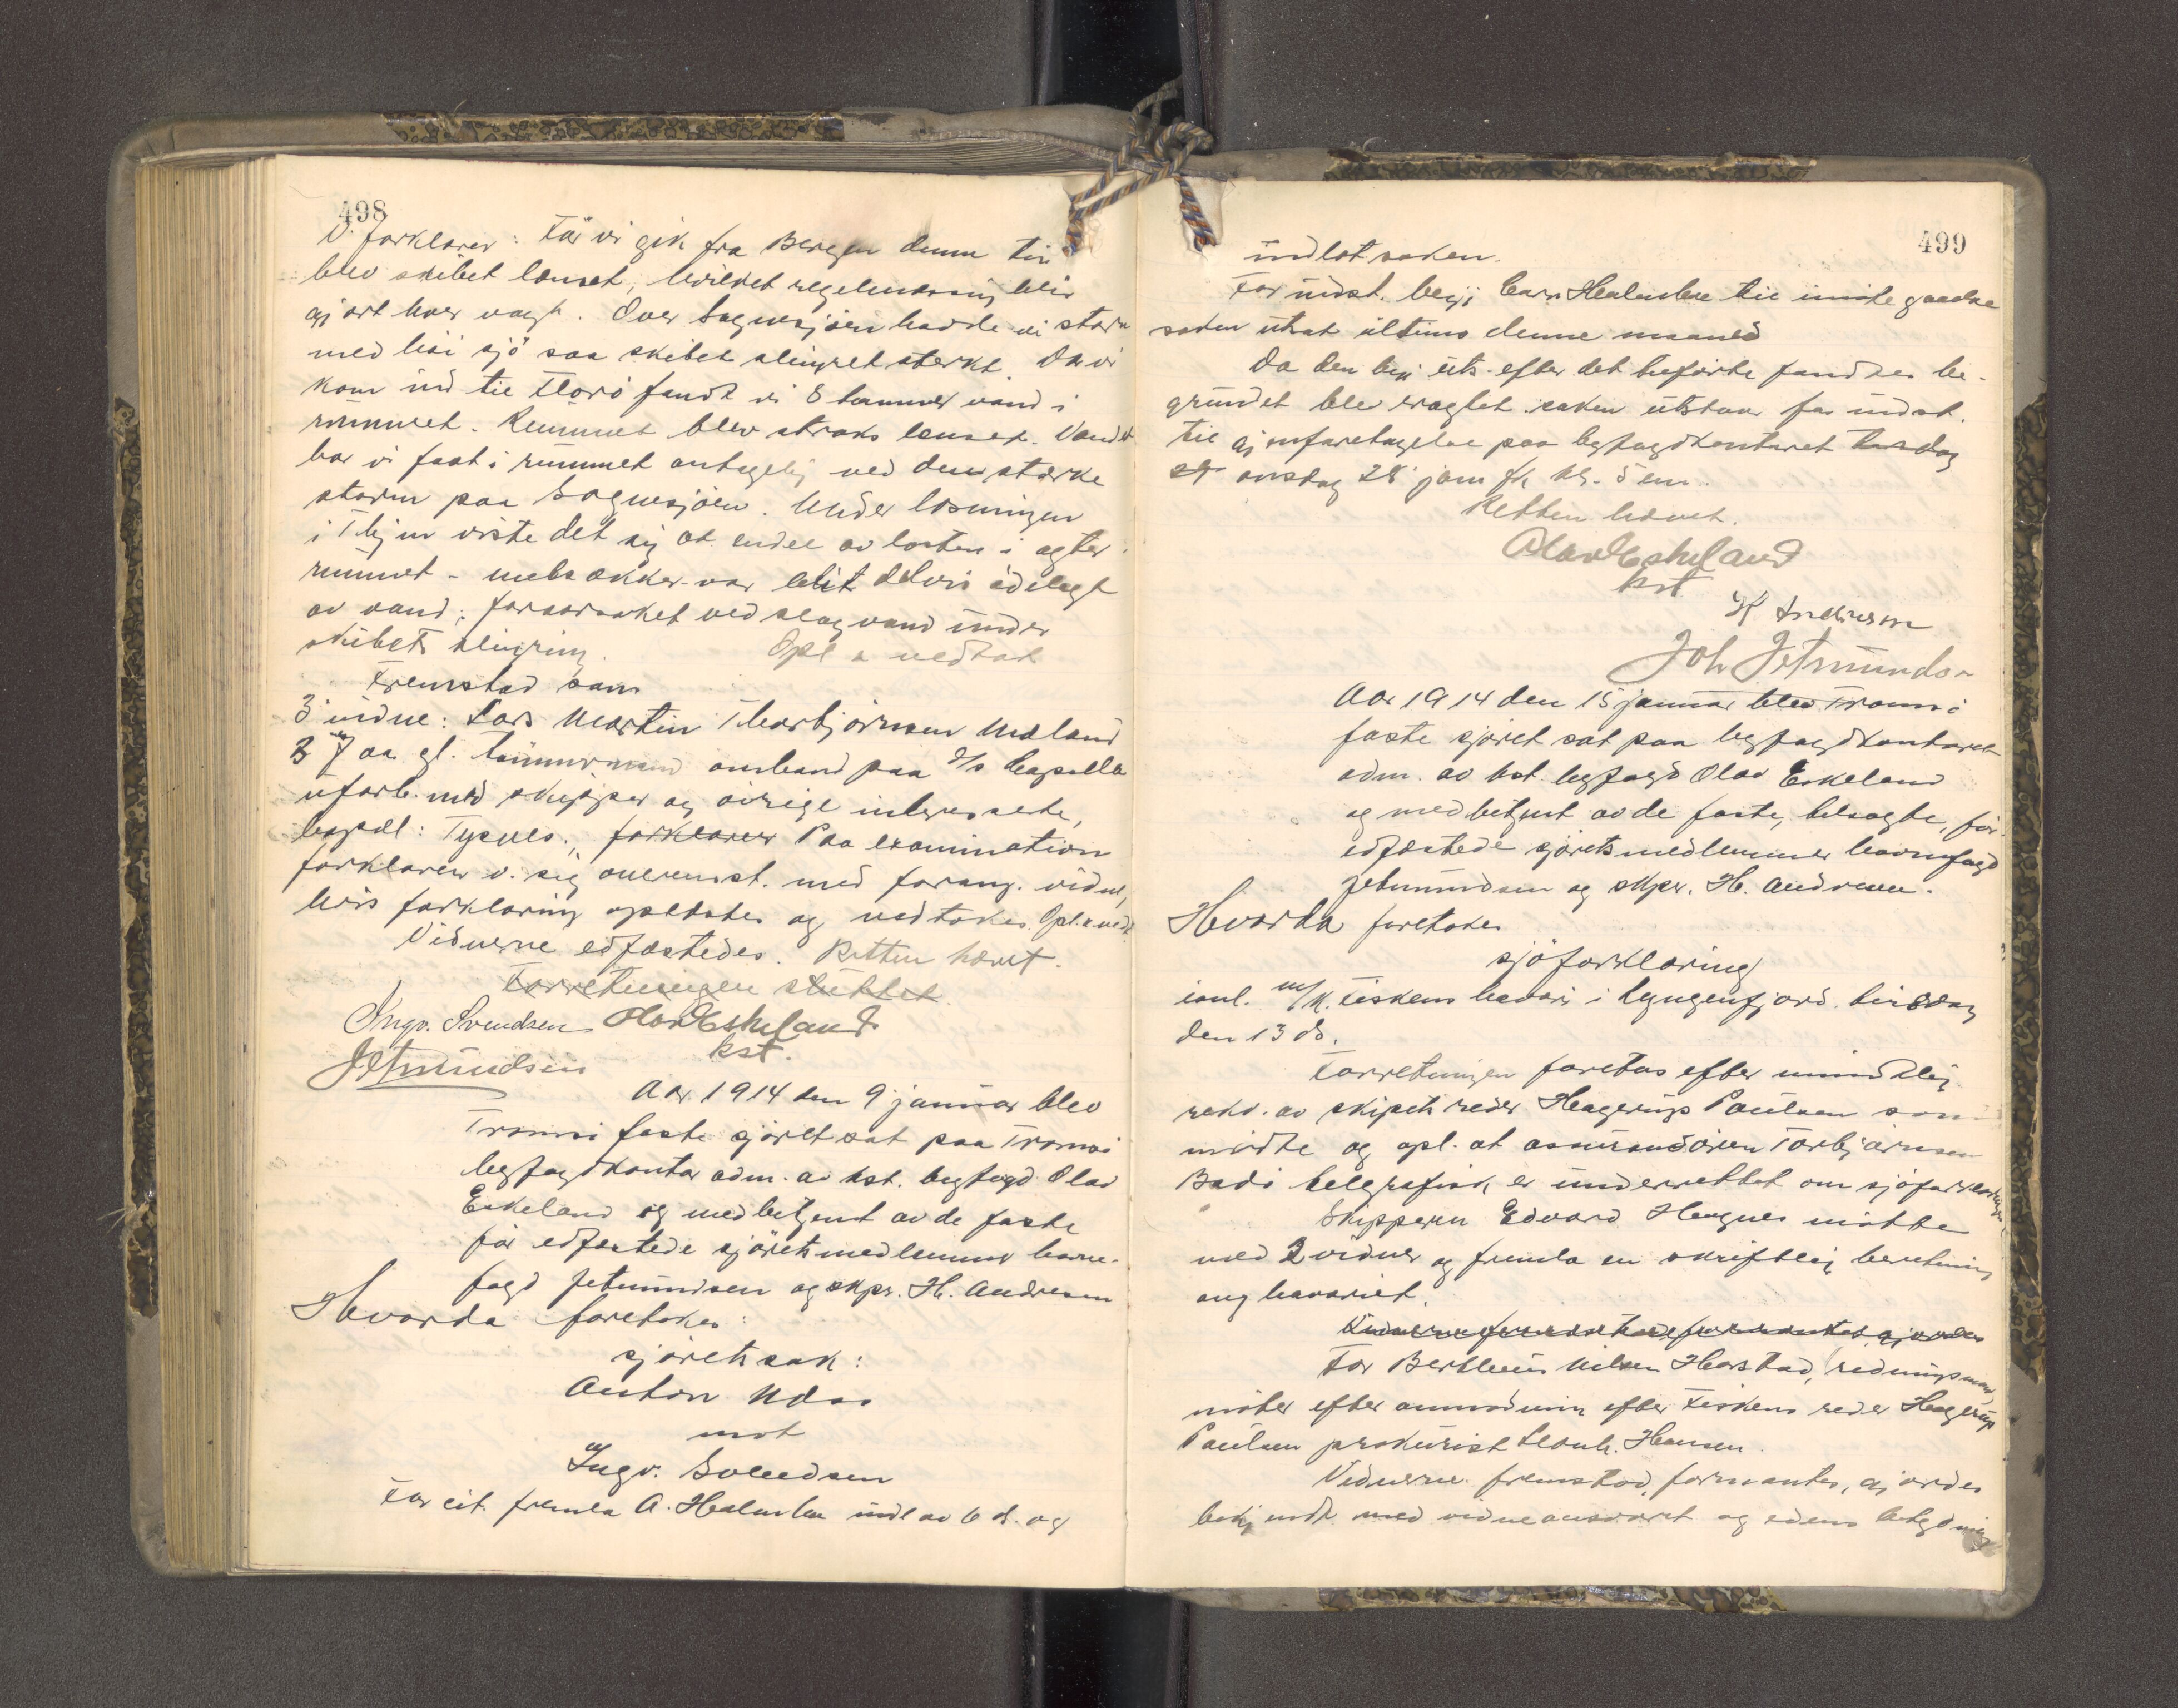 498
V. forklarer: Før vi gik fra Bergen denne tur
blev skibet lænset, hvilket regelmæssig blir
gjort hver vagt. Over Sognesjøen hadde vi storm
med høi sjø saa skibet slingret stærkt. Da vi
kom ind til Florø fandt vi 8 tommer vand i
rummet. Rummet blev straks lænset. Vandet
har vi faat i rummet antagelig ved den stærke
storm paa Sognesjøen. Under losningen
i viste det sig at endel av lasten i agter
rummet - melsækker - var blit delvis ødelagt
av vand; foraarsaket ved slagvand under
skibets slingring. Opl & vedtat
Fremstod som
3 vidne: Lars Martin Thorbjørnsen Mæland
37 aa. gl. tømmermand ombord paa d/s Capella
uforb. med skipper og øvrige interesserte,
bopæl: Tysnes. forklarer Paa examination
forklarer v. sig overenst. med forang. vidne,
hvis forklaring oplæstes og vedtokes. Opl. & vedt.
Vidnerne edfæstedes. Retten hævet.
Forretningen sluttet.
Ingv. Svendsen Olav Eskeland
kst.
Jetmundsen
Aar 1914 den 9 januar blev
Tromsø faste sjøret sat paa Tromsø
byfogdkontor adm. av kst. byfogd Olav
Eskeland og med betjent av de faste
før edfæstede sjøretsmedlemmer havne-
fogd Jetmundsen og skpr. H. Andresen
Hvorda foretokes:
sjøretssak:
Anton
mot
Ingv. Svendsen
For cit. fremla A. Holmboe indl av 6 ds. og
499
indlot saken.
For indst. begj. Carr Holmboe til imøtegaaelse
saken utsat ultimo denne maaned
Da den begj. uts. efter det anførte fandtes be-
grundet blev eragtet: saken utstaar for indst.
til gjenforetagelse paa byfogdkontoret
onsdag 28 jan. kl. 5 em.
Retten hævet.
Olav Eskeland
kst
H Andresen
Joh Jetmundsen
Aar 1914 den 15 januar blev Tromsø
faste sjøret sat paa byfogdkontoret
adm. av kst. byfogd Olav Eskeland
og med betjent av de faste, tilsagte, før
edfæstede sjøretsmedlemmer havnefogd
Jetmundsen og skpr. H. Andresen.
Hvorda foretokes
sjøforklaring
ianl. m/k. Fiskens havari i Lyngenfjord tirsdag
den 13 ds.
Forretningen foretas efter mundtlig
rekv. av skipets reder Hagerup Paulsen som
møtte og opl. at assurandøren Torbjørnsen
Bodø telegrafisk er underrettet om sjøforklaringen
Skipperen Edvard Hagnes møtte
med 2 vidner og fremla en skriftlig beretning
ang havariet.
Vidnerne fremstod, formantes, gjordes
For Bertheus Nilsen Harstad, redningsmand,
møter efter anmodning efter Fiskens reder Hagerup
Paulsen prokurist Hansen.
Vidnerne fremstod, formantes, gjordes
bekjendt med vidneansvaret og edens betydning